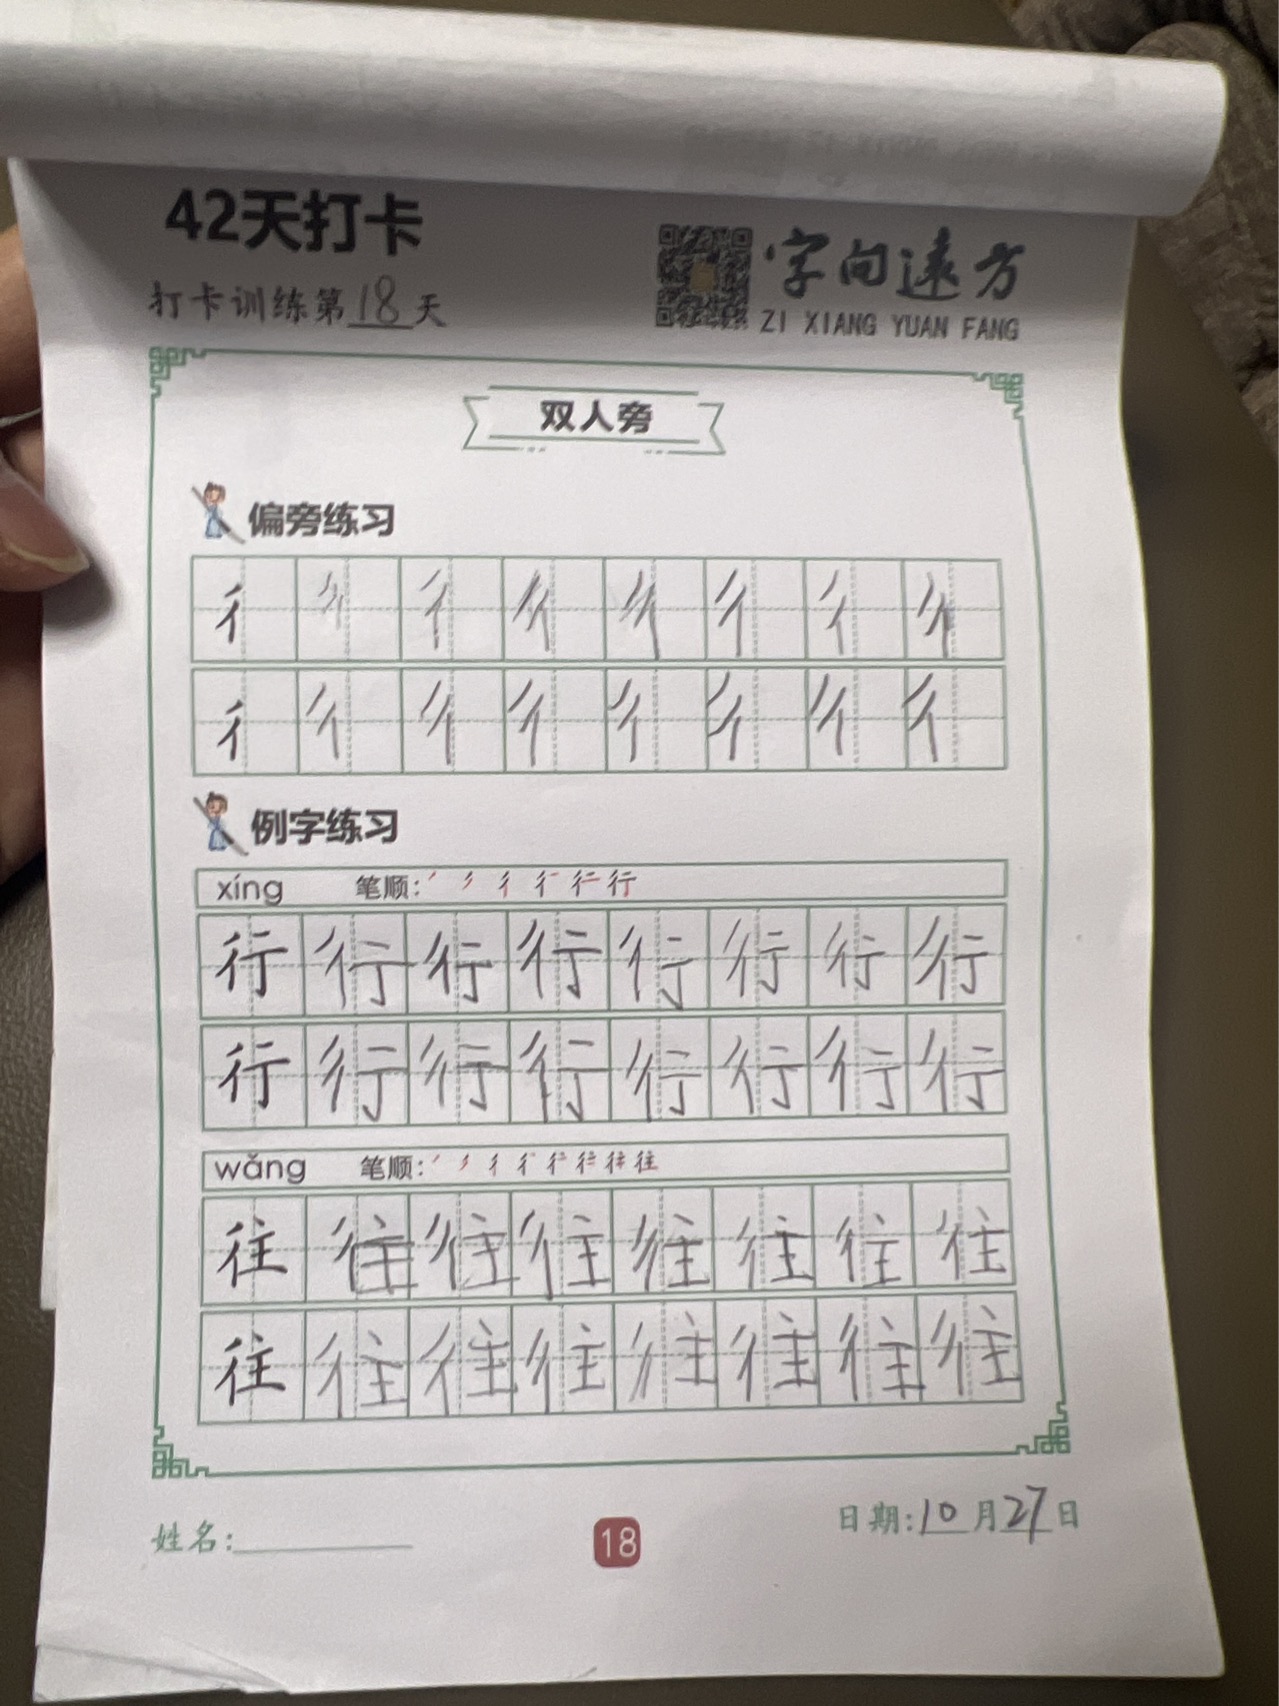 42天打卡
打卡训练第18天
字向遠方
ZI XIANG YUAN FANG
双人旁
偏旁练习
彳 彳 彳 彳 彳 彳 彳 彳
彳 彳 彳 彳 彳 彳 彳 彳
例字练习
xíng 笔顺:
行 行 行 行 行 行 行 行
行 行 行 行 行 行 行 行
wǎng 笔顺:
往 往 往 往 往 往 往 往
往 往 往 往 往 往 往 往
姓名:
18
日期:10月27日